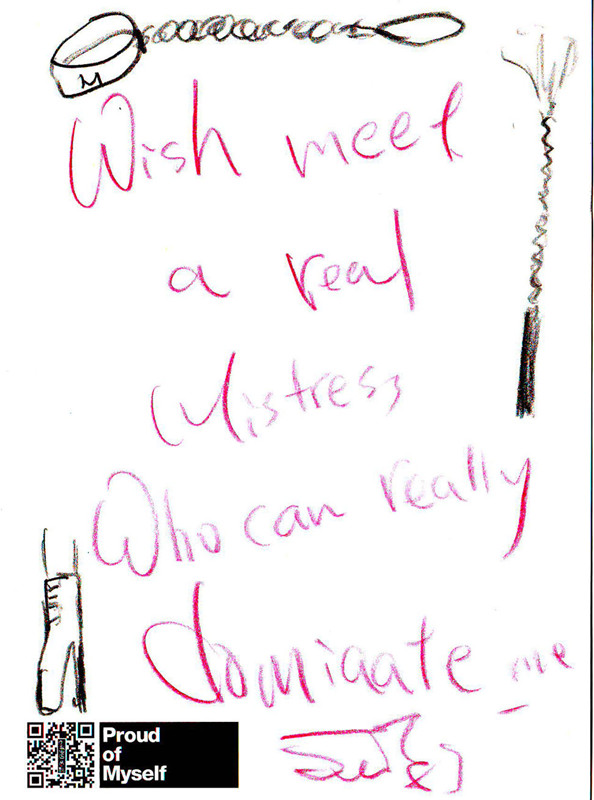 M
Wish meet
a real
Mistress
Who can really
domiaate me
Proud
of
Myself